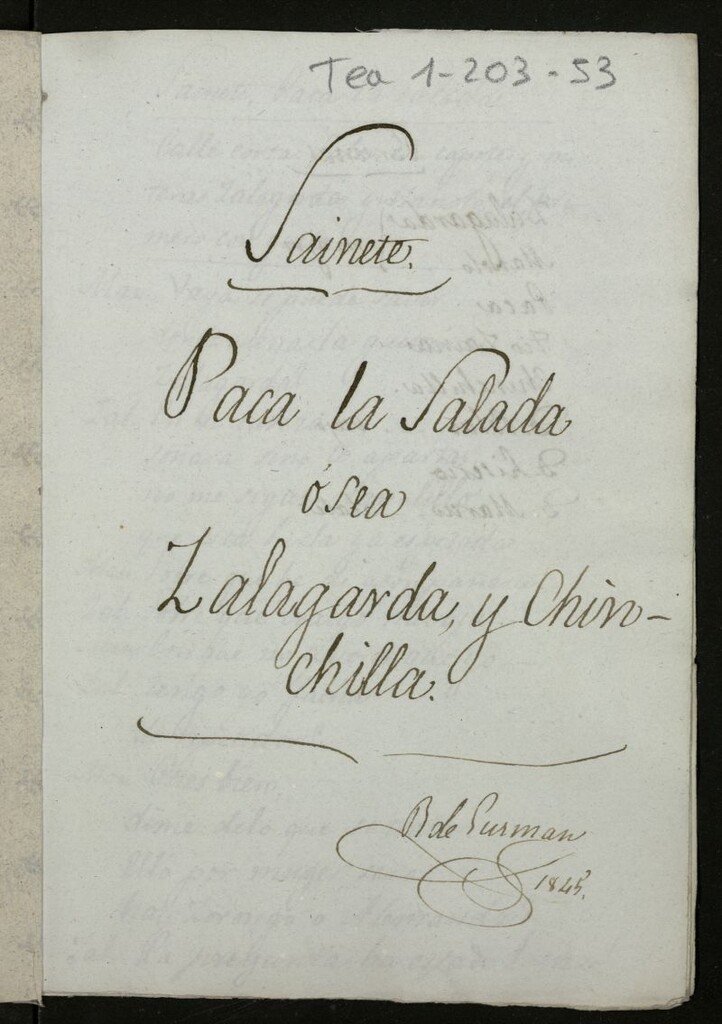 Tea 1-203-53
Sainete.
Paca la Salada
ó sea
Zalagarda, y Chin-
chilla.
R de Gurman
1845.